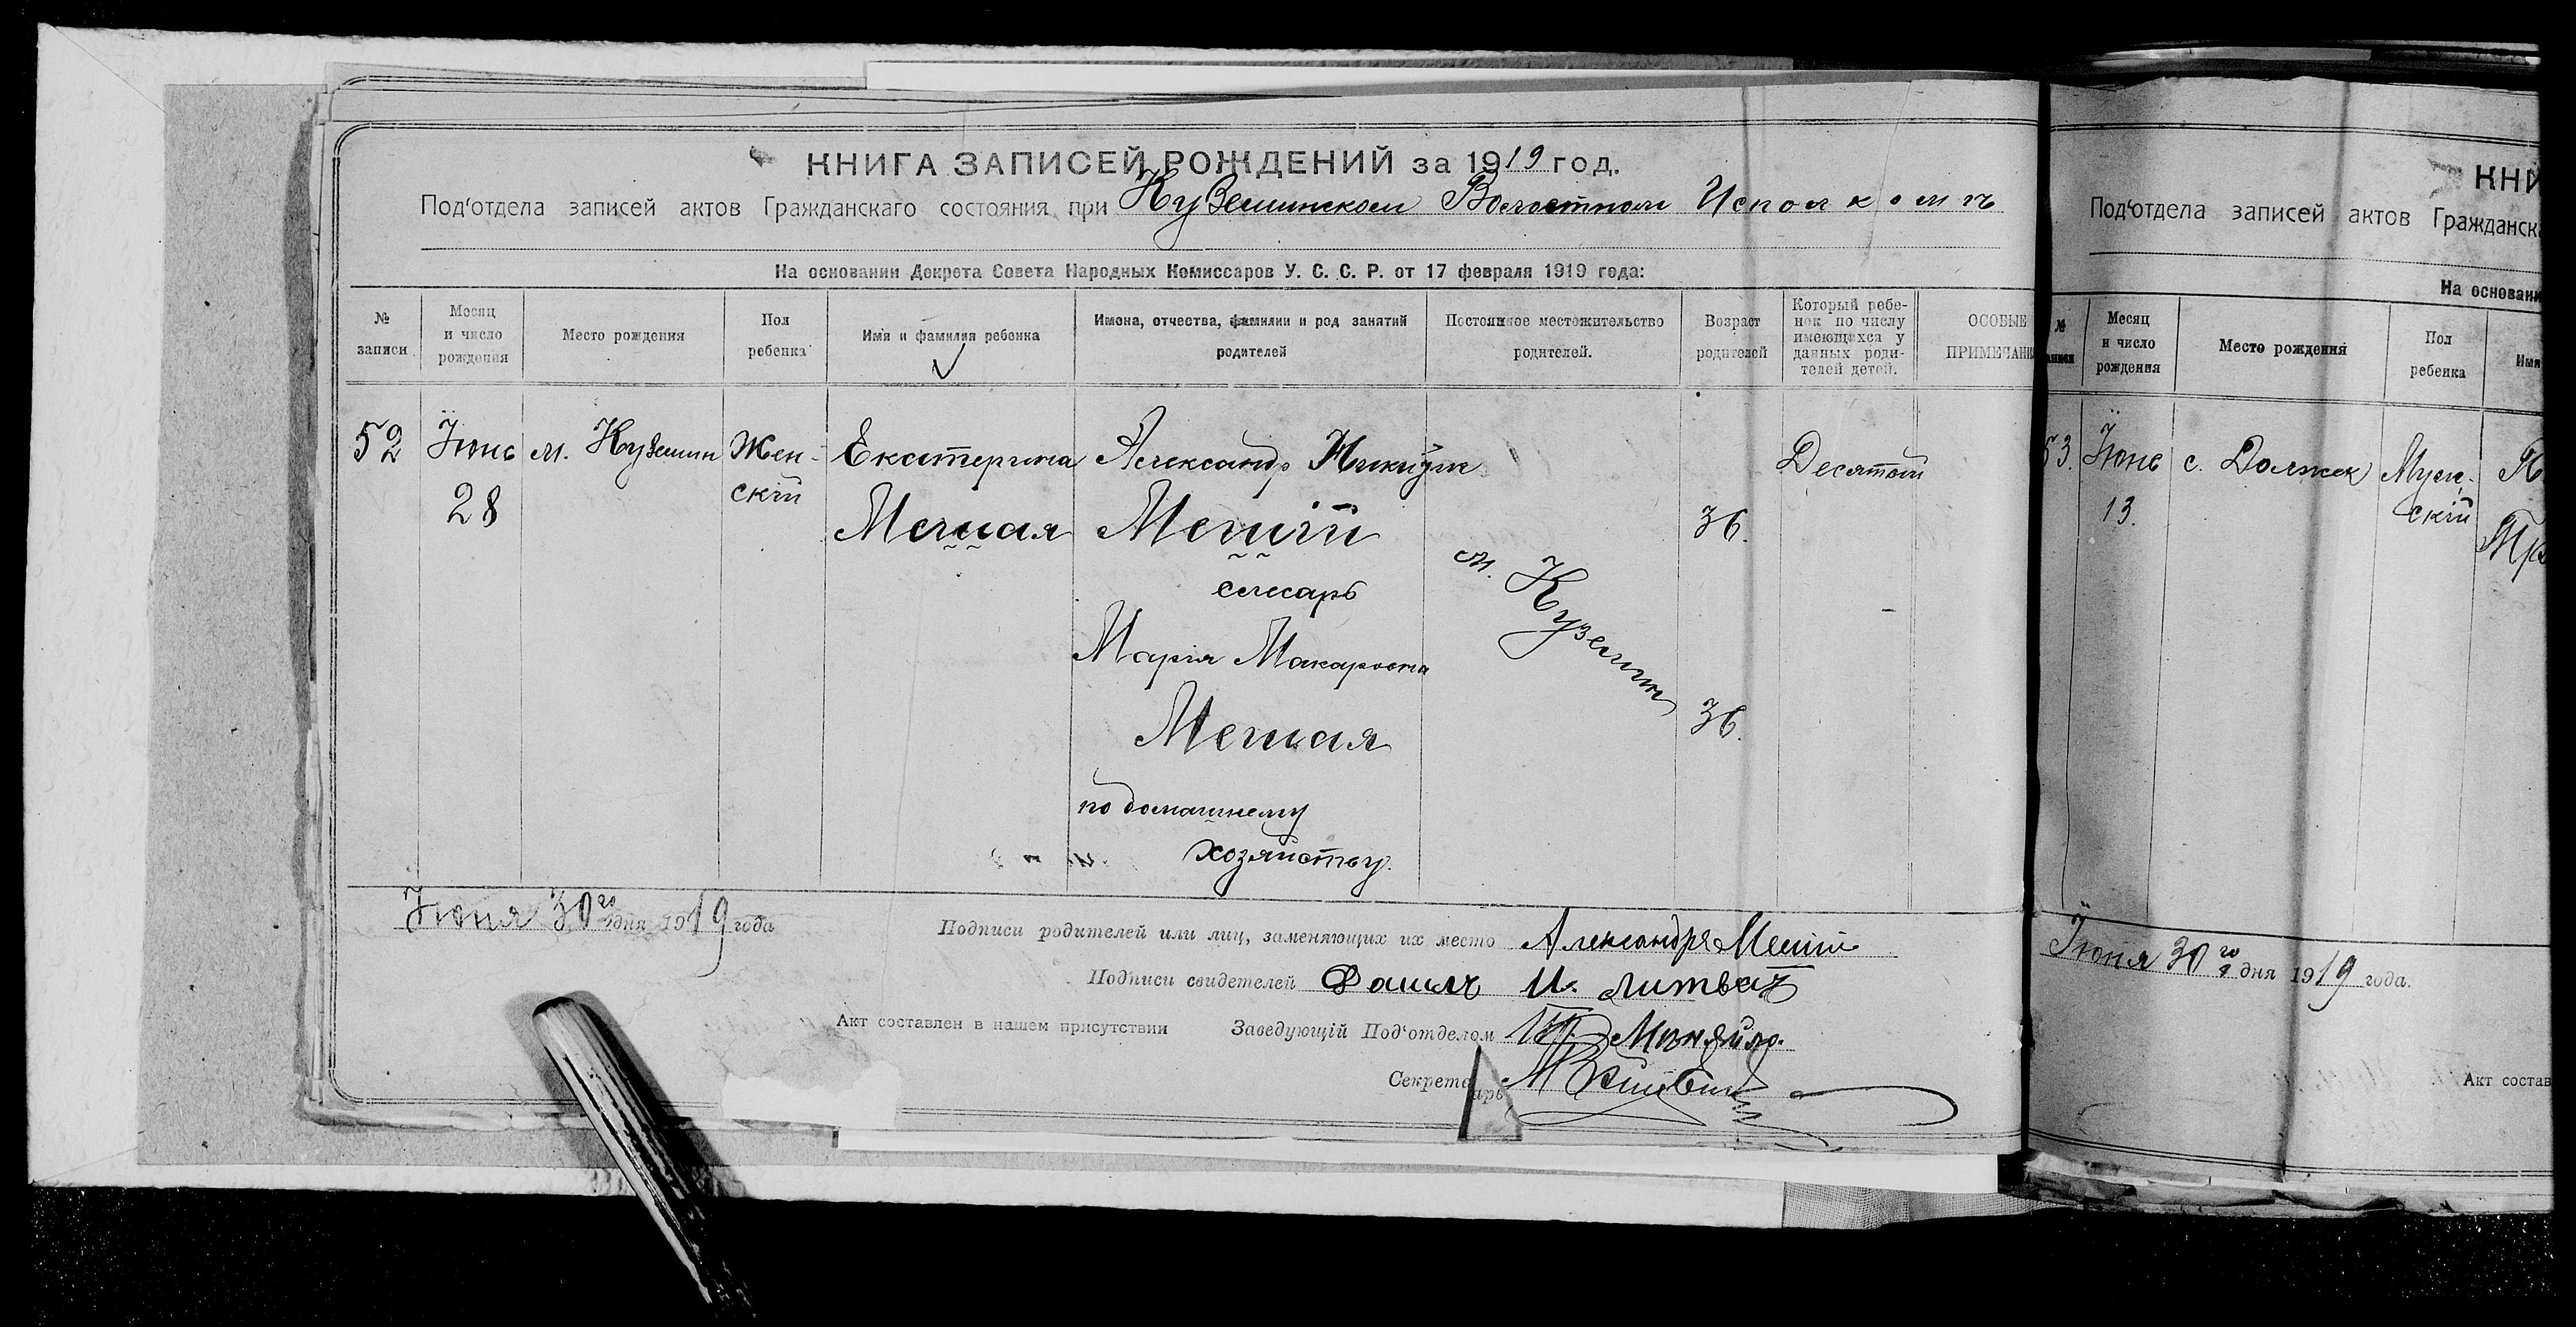 КНИГА ЗАПИСЕЙ РОЖДЕНИЙ за 1919 год.
Под‘отдела записей актов Гражданскаго состояния при Куземинском Волостном Исполкомѣ
На основании Декрета Совета Народных Комиссаров У. С. С. Р. от 17 февраля 1919 года:
№ записи
Месяц и число рождения
Место рождения
Пол ребенка
Имя и фамилия ребенка
Имена, отчества, фамилии и род занятий родителей
Постоянное местожительство родителей.
Возраст родителей
Который ребенок по числу имеющихся у данных родителей детей.
ОСОБЫЕ ПРИМЕЧАНИ
52
Іюнь
28
м. Куземин
Жен-
скій
Екатерина
Александр
слесарь
Марія Макаровна
по домашнему
хозяйству.
м. Куземин
36.
36.
Десятый
Іюня 30го дня 1919 года
Подписи родителей или лиц, заменяющих их место Александръ
Подписи свидетелей И. Литвак
Акт составлен в нашем присутствии Заведующій Под‘отделом
Секретарь
КНИ
Под‘отдела записей актов Гражданск
На основани
№
Месяц и число рождения
Место рождения
Пол ребенка
Имя
53.
Іюнь
13.
с. Должек
Муж-
скій
Іюня 30го дня 1919 года.
Акт состав